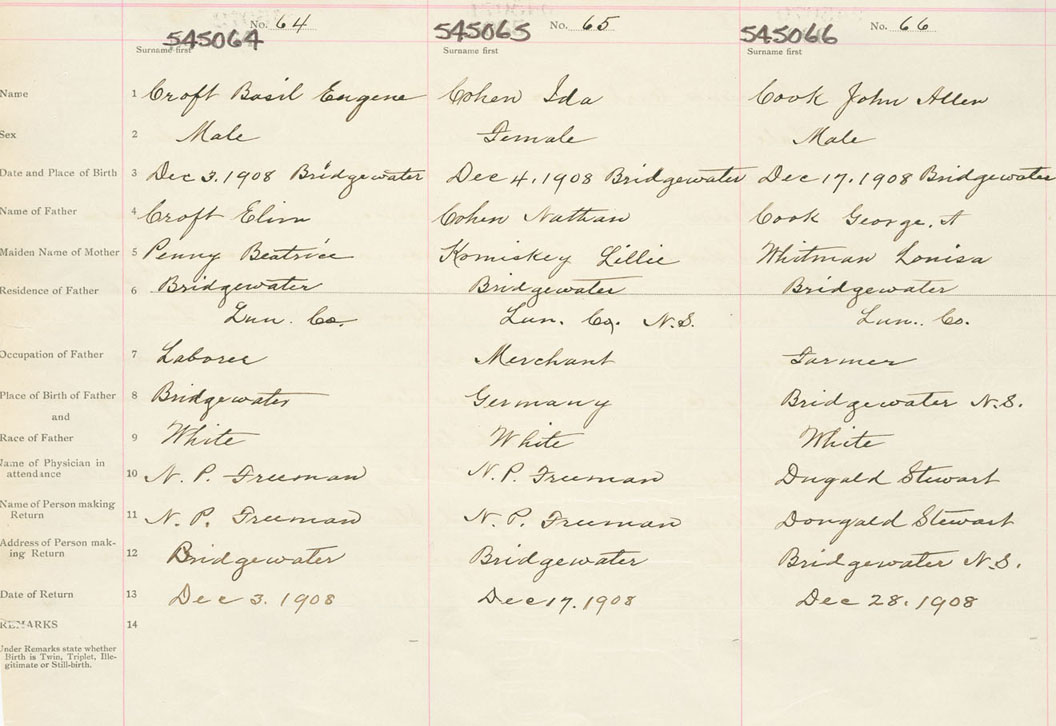 No. 64 No. 65 No. 66
545064 545065 545066
Surname first Surname first Surname first
Name 1 Croft Basil Eugene Cohen Ida Cook John Allen
Sex 2 Male Female Male
Date and Place of Birth 3 Dec 3. 1908 Bridgewater Dec 4. 1908 Bridgewater Dec 17. 1908 Bridgewater
Name of Father 4 Croft Elim Cohen Nathan Cook George. A
Maiden Name of Mother 5 Penny Beatrice Komiskey Lillie Whitman Louisa
Residence of Father 6 Bridgewater Bridgewater Bridgewater
Lun. Co. Lun. Co. N.S. Lun. Co.
Occupation of Father 7 Laborer Merchant Farmer
Place of Birth of Father 8 Bridgewater Germany Bridgewater N.S.
and
Race of Father 9 White White White
Name of Physician in
attendance 10 N. P. Freeman N. P. Freeman Dugald Stewart
Name of Person making
Return 11 N. P. Freeman N. P. Freeman Dougald Stewart
Address of Person mak-
ing Return 12 Bridgewater Bridgewater Bridgewater N.S.
Date of Return 13 Dec 3. 1908 Dec 17. 1908 Dec 28. 1908
REMARKS 14
Under Remarks state whether
Birth is Twin, Triplet, Ille-
gitimate or Still-birth.